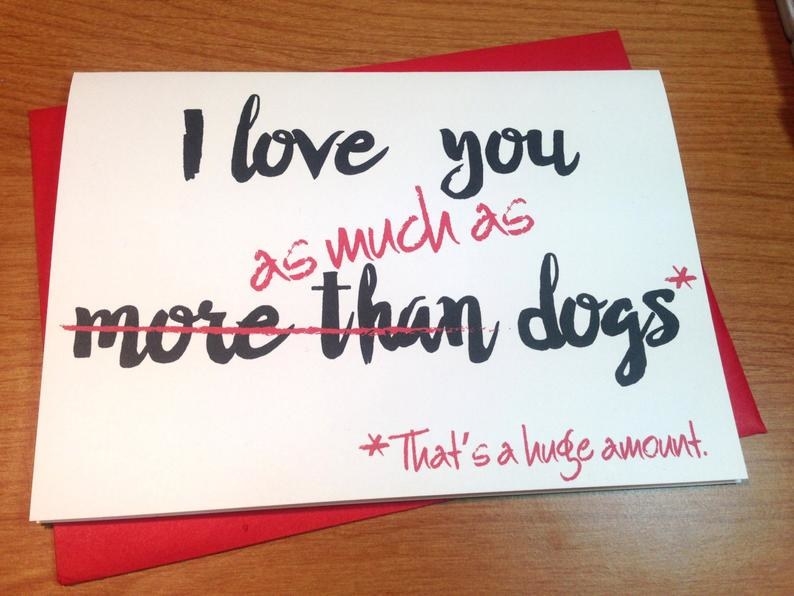 I love you
as much as
more than dogs*
*That's a huge amount.